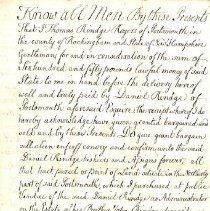 Know all Men By these Presents
That I Thomas Rindge Rogers of Portsmouth in
the county of Rockingham and State of New Hampshire
Gentleman for and in consideration of the sum of
six hundred and fifty pounds lawful money of said
State to me in hand before the delivery hereof
well and truly paid by Daniel Rindge of
Portsmouth aforesaid Esquire the receipt whereof I do
hereby acknowledge have given granted bargained and
sold and by these Presents Do give grant bargain
sell alien enfeoff convey and confirm unto the said
Daniel Rindge his heirs and Assigns forever all
that tract parcel or part of Land situate on the
part of said Portsmouth which I purchased at public
Vendue of the said Daniel Rindge as Administrator
on the Estate of his Brother John Rindge